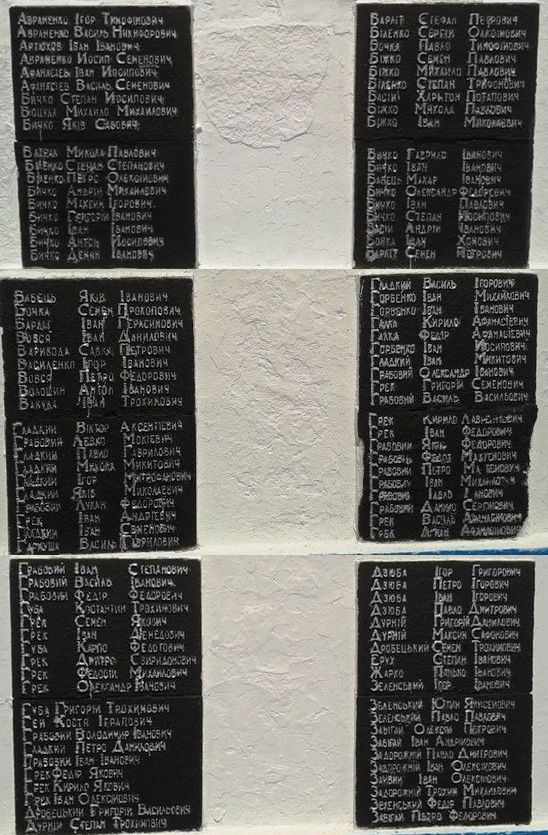 Авраменко Ігор Тимофійович
Авраменко Василь Никифорович
Артюхов Іван Іванович
Авраменко Йосип Семенович
Афанасієв Іван Йосипович
Афанасієв Василь Семенович
Бичко Степан Йосипович
Боцула Михайло Михайлович
Бичко Яків Савович
Микола Павлович
Біленко Степан Степанович
Біленко Петро Олексійович
Бичко Андрій Михайлович
Бичко Максим Ігорович
Бичко Григорій Іванович
Бичко Іван Іванович
Бичко Антон Йосипович
Бичко Демян Іванович
Стефан Петрович
Біленко Сергій
Бочка Павло Тимофійович
Біжко Семен Павлович
Біжко Михайло Павлович
Біленко Степан Трифонович
Басій Харьтон Потапович
Біжко Микола Павлович
Біжко Іван Миколаевич
Бичко Гаврило Іванович
Бичко Іван Іванович
Бабець Макар Іванович
Бичко Олександр Федорович
Бичко Іван Павлович
Бичко Степан Йосипович
Андрій Іванович
Бойка Іван Хомович
Семен Петрович
Бабець Яків Іванович
Бочка Семен Прокопович
Іван Герасимович
Вовся Іван Данилович
Варивода Савка Петрович
Василенко Ігор Іванович
Вовся Петро Федорович
Волошин Антон Іванович
Вакула Іван Трохимович
Гладкий Віктор Аксентієвич
Грабовий Левко Мокієвич
Гладкий Павло Гаврилович
Гладкий Микола Микитович
Гладкий Ігор Митрофанович
Гладкий Яків Миколаевич
Грабовий Лукан Федорович
Грек Іван Андрієвич
Гладкий Іван Семенович
Гаркуша Василь Гаврилович
Гладкий Василь Ігорович
Горбенко Іван Михайлович
Горбенко Іван Іванович
Галка Кирило Афанасієвич
Галка Федір Афанасієвич
Горбенко Іван Йосипович
Гладкий Іван Микитович
Грабовий Олександр Іванович
Грек Григорій Семенович
Грабовий Василь Васильович
Грек Кирило Лаврентович
Грек Іван Федорович
Грабовий Яків Федорович
Грабовий Федот
Грабовий Петро
Грабовий Іван
Грабовий Павло Іванович
Грабовий Данило Сергійович
Грек Василь Афанасійович
Грек
Грабовий Іван Степанович
Грабовий Василь Іванович
Грабовий Федір Федорович
Губа Костантин Трохимович
Грек Семен Якович
Грек Іван
Губа Карпо Федотович
Грек Дмитро Свиридонович
Грек Федосій Михайлович
Грек Олександр Іванович
Губа Григорій Трохимович
Гей Костя
Грабовий Володимир Іванович
Гладкий Петро Данилович
Грабовий Іван Іванович
Грек Федір Якович
Грек Кирило Якович
Грек Іван Олексійович
Дробецький Григорій Васильєвич
Дурній Степан Трохимович
Дзюба Ігор Григорович
Дзюба Петро Ігорович
Дзюба Іван Ігорович
Дзюба Павло Дмитрович
Дурній Григорій Данилович
Дурній Максим Сафонович
Дробецький Семен Трохимович
Ерух Степан Іванович
Жарко Панько Іванович
Зеленський Ігор Іванович
Зеленський Юхим
Зеленський Павло Павлович
Забігай Олексій Петрович
Забігай Іван Андрійович
Задорожній Павло Дмитрович
Задорожній Іван Олексійович
Іван Олексійович
Задорожній Трохим Михайлович
Зеленський Федір Павлович
Забігай Петро Федорович